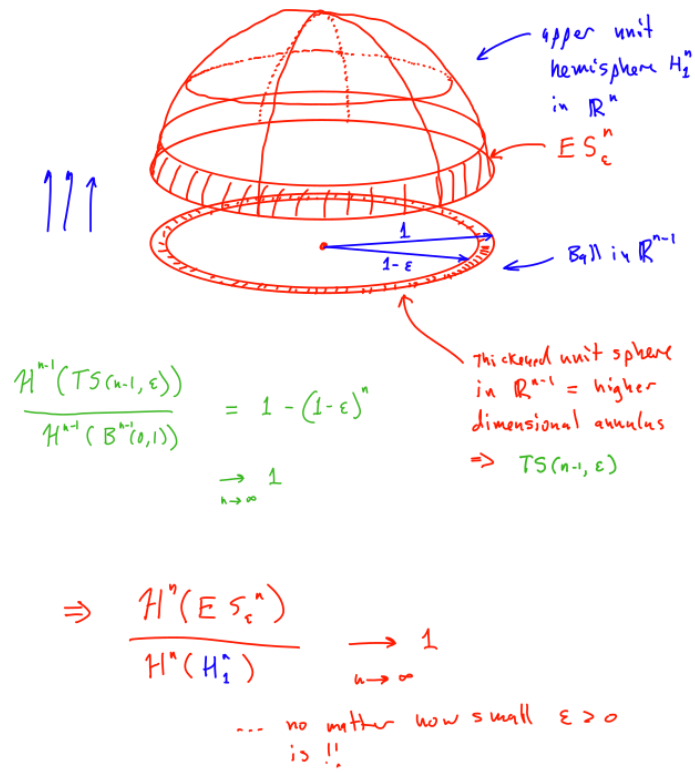 upper unit
hemisphere H₁ⁿ
in ℝⁿ
E S_εⁿ
1
1-ε
Ball in ℝⁿ⁻¹
Thickened unit sphere
in ℝⁿ⁻¹ = higher
dimensional annulus
⇒ TS(n-1, ε)
ℋⁿ⁻¹(TS(n-1, ε)) / ℋⁿ⁻¹(Bⁿ⁻¹(0,1)) = 1 - (1-ε)ⁿ
→ 1
n→∞
⇒ ℋⁿ(E S_εⁿ) / ℋⁿ(H₁ⁿ) → 1
n→∞
... no matter how small ε > 0
is !!